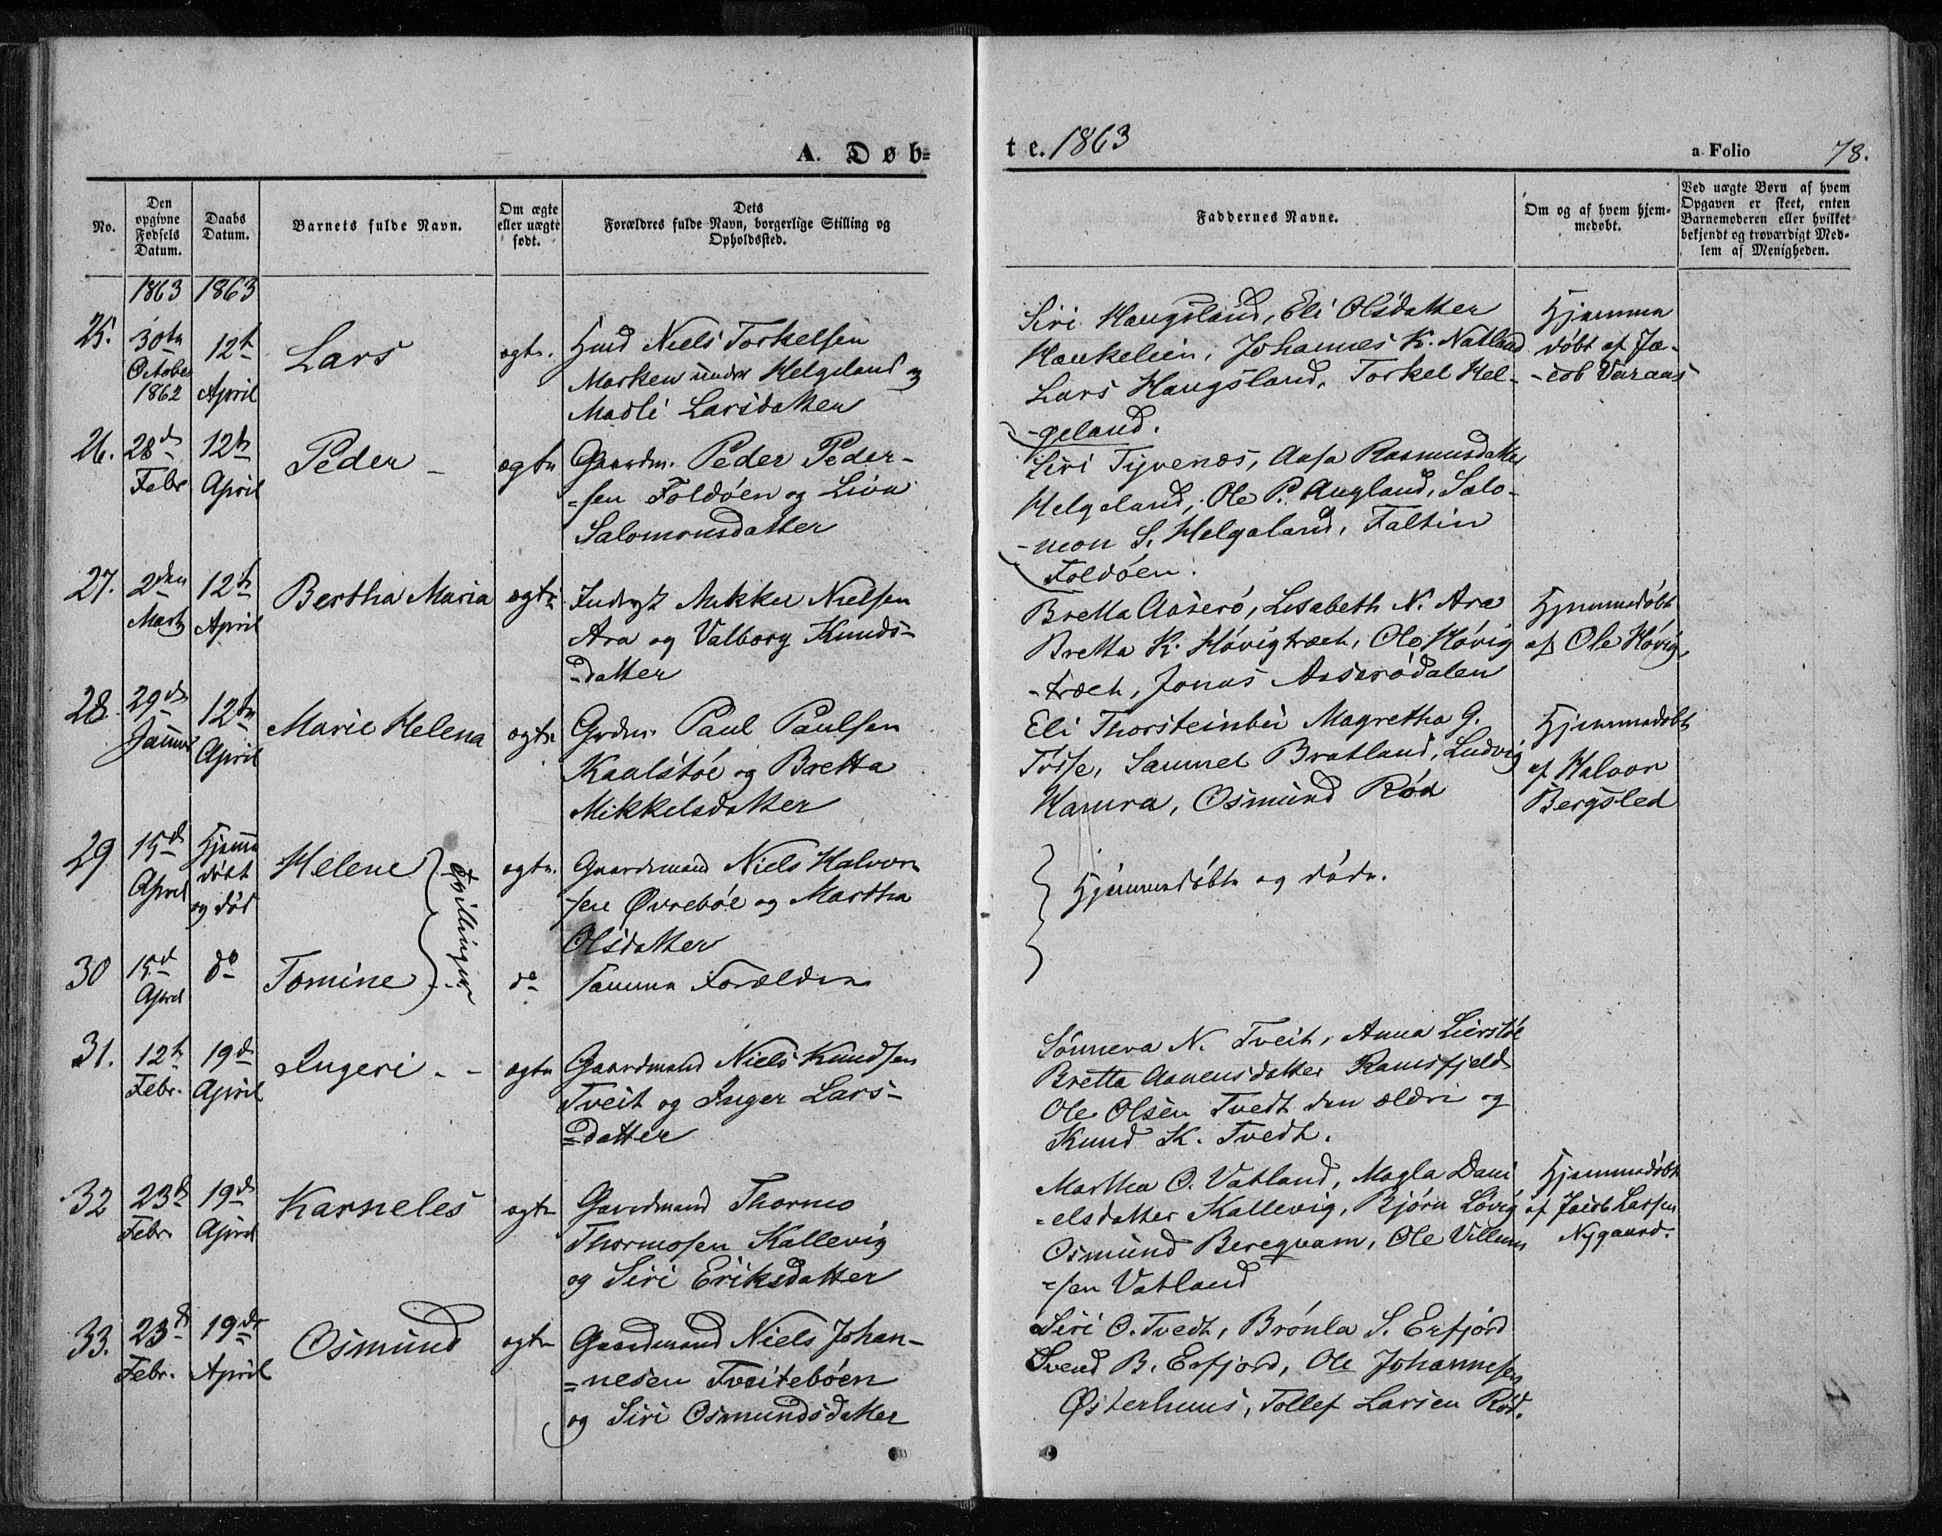 A. Døb=
te. 1863
a Folio 78.
No.
Den opgivne Fødsels Datum.
Daabs Datum.
Barnets fulde Navn.
Om ægte eller uægte født.
Dets Forældres fulde Navn, borgerlige Stilling og Opholdssted.
Faddernes Navne.
Om og af hvem hjem-
medøbt.
Ved uægte Børn af hvem
Opgaven er skeet, enten
Barnemoderen eller hvilket
bekjendt og troværdigt Med-
lem af Menigheden.
1863 1863
25.
30te
October
1862
12te
April
Lars
ægte.
Hmd Niels Torkelsen
Marken under Helgeland og
Madli Larsdatter
Siri Haugsland, Eli Olsdatter
Haukelien, Johannes K. Natland
Lars Haugsland, Torkel Hel-
-geland.
Hjemme
døbt af Ja-
-cob Varaas
26.
28de
Febr
12te
April
Peder -
ægte
Gaardm. Peder Peder-
=sen Foldøen og Liva
Salomonsdatter
Siri Tyvenæs, Aasa Rasmusdatter
Helgeland, Ole P. Augland, Salo-
-mon S. Helgeland, Faltin
Foldøen.
27.
2den
Marts
12te
April
Bertha Maria
ægte
Inderst Mikkel Nielsen
Ara og Valborg Knuds-
-datter
Bretta Aaserö, Lisabeth N. Ara
Bretta K. Høvigtræet, Ole Høvig
-træet, Jonas Aaserödalen
Hjemmedøbt
af Ole Høvig.
28.
29de
Januar
12te
April
Marie Helena
ægte
Grdm. Paul Paulsen
Kaalstøe og Bretta
Mikkelsdatter
Eli Thorsteinbei Magretha G.
Tysse, Samuel Bratland, Ludvig
Hamra, Osmund Rød
Hjemmedøbt
af Halvor
Bergsted
29
15de
April
Hjemme
døbt
og død
Helene
Tvillinger
ægte.
Gaardmand Niels Halvor-
sen Øvrebøe og Martha
Olsdatter
Hjemmedøbte og døde.
30
15de
April
do
Tomine
do
samme Forældre
31.
12te
Febr.
19de
April
Ingeri - -
ægte
Gaardmand Niels Knudsen
Tveit og Inger Lars-
=datter
Sønneva N. Tveit, Anna Lierstøe
Bretta Aanensdatter Ramsfjeld
Ole Olsen Tvedt den ældri og
Knud K. Tvedt.
32
23de
Febr
19de
April
Karneles
ægte
Gaardmand Thormo
Thormosen Kallevig
og Siri Eriksdatter
Martha O. Vatland, Magla Dani
-elsdatter Kallevig, Bjørn Løvig
Osmund Bergqvam, Ole Villum
=sen Vatland
Hjemmedøbt
af Jacob Larsen
Nygaard.
33.
23de
Febr.
19de
April
Osmund
ægte
Gaardmand Niels Johan-
=nesen Tveitebøen
og Siri Osmundsdatter
Siri O. Tvedt, Brønla S. Erfjord
Svend B. Erfjord, Ole Johannesen
Østerhuus, Tollef Larsen Rød.